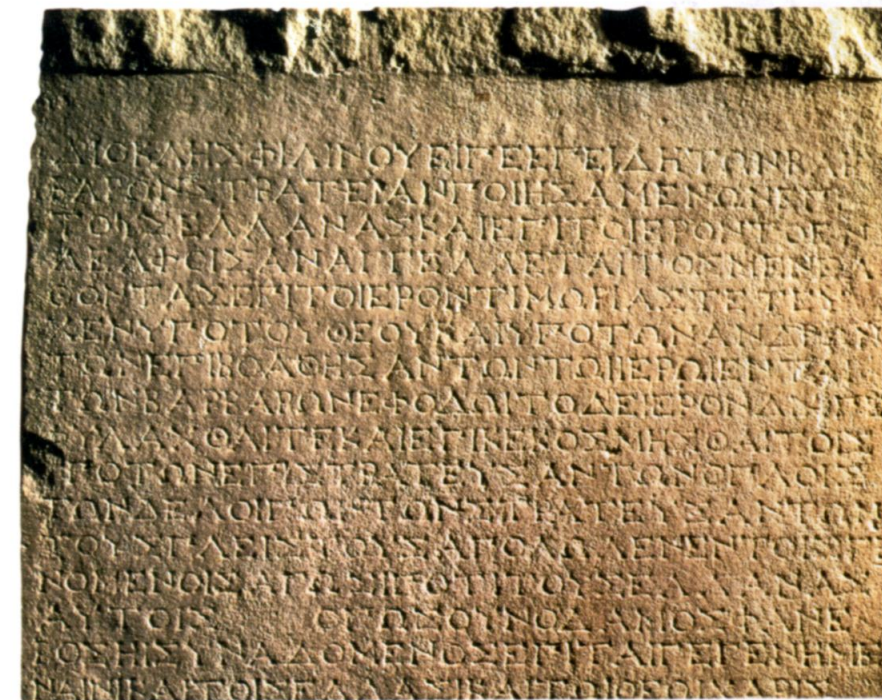 ΔΙΟΚΛΗΣΦΙΛΙΝΟΥΕΙΠΕΕΠΕΙΔΗΤΩΝΒΑΡ
ΒΑΡΩΝΣΤΡΑΤΕΙΑΝΠΟΙΗΣΑΜΕΝΩΝΕΠΙ
ΤΟΥΣΕΛΛΑΝΑΣΚΑΙΕΠΙΤΟΙΕΡΟΝΤΟΕΝ
ΔΕΛΦΟΙΣΑΝΑΓΓΕΛΛΕΤΑΙΤΟΣΜΕΝΕΛ
ΘΟΝΤΑΣΕΠΙΤΟΙΕΡΟΝΤΙΜΩΡΙΑΣΤΕΤΕΥ
ΧΕΝΥΠΟΤΟΥΘΕΟΥΚΑΙΥΠΟΤΩΝΑΝΔΡΩΝ
ΤΩΝΕΠΙΒΟΑΘΗΣΑΝΤΩΝΤΩΙΙΕΡΩΙΕΝΤΑΙ
ΤΩΝΒΑΡΒΑΡΩΝΕΦΟΔΩΙΤΟΔΕΙΕΡΟΝΔΙΑΠΕ
ΦΥΛΑΧΘΑΙΤΕΚΑΙΕΠΙΚΕΚΟΣΜΗΣΘΑΙΤΟΙΣ
ΥΠΟΤΩΝΕΠΙΣΤΡΑΤΕΥΣΑΝΤΩΝΟΠΛΟΙΣ
ΤΩΝΔΕΛΟΙΠΩΝΤΩΝΣΤΡΑΤΕΥΣΑΝΤΩΝ
ΤΟΥΣΠΛΕΙΣΤΟΥΣΑΠΟΛΩΛΕΝΕΝΤΟΙΣΓΕ
ΝΟΜΕΝΟΙΣΑΓΩΣΙΠΟΤΙΤΟΥΣΕΛΛΑΝΑΣ
ΑΥΤΟΙΣ ΟΠΩΣΟΥΝΟΔΑΜΟΣΦΑΝΕ
ΡΟΣΗΙΣΥΝΑΔΟΜΕΝΟΣΕΠΙΤΑΙΓΕΓΕΝΗΜΕ
ΝΑΙΝΙΚΑΙΤΟΙΣΕΛΛΑΣΙΚΑΙΤΩΙΘΕΩΙΧΑΡΙΣ